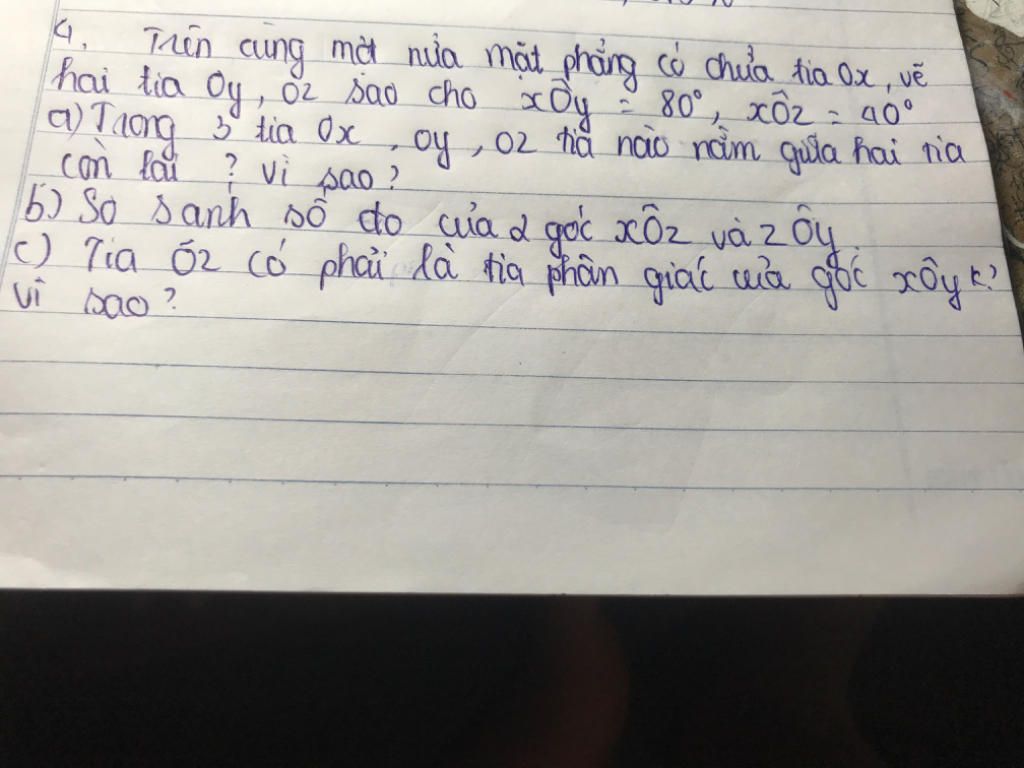 4. Trên cùng một nửa mặt phẳng có chứa tia Ox, vẽ
hai tia Oy, Oz sao cho xÔy = 80°, xÔz = 40°
a) Trong 3 tia Ox, Oy, Oz tia nào nằm giữa hai tia
còn lại ? Vì sao?
b) So sánh số đo của 2 góc xÔz và zÔy.
c) Tia Oz có phải là tia phân giác của góc xÔy k?
vì sao?